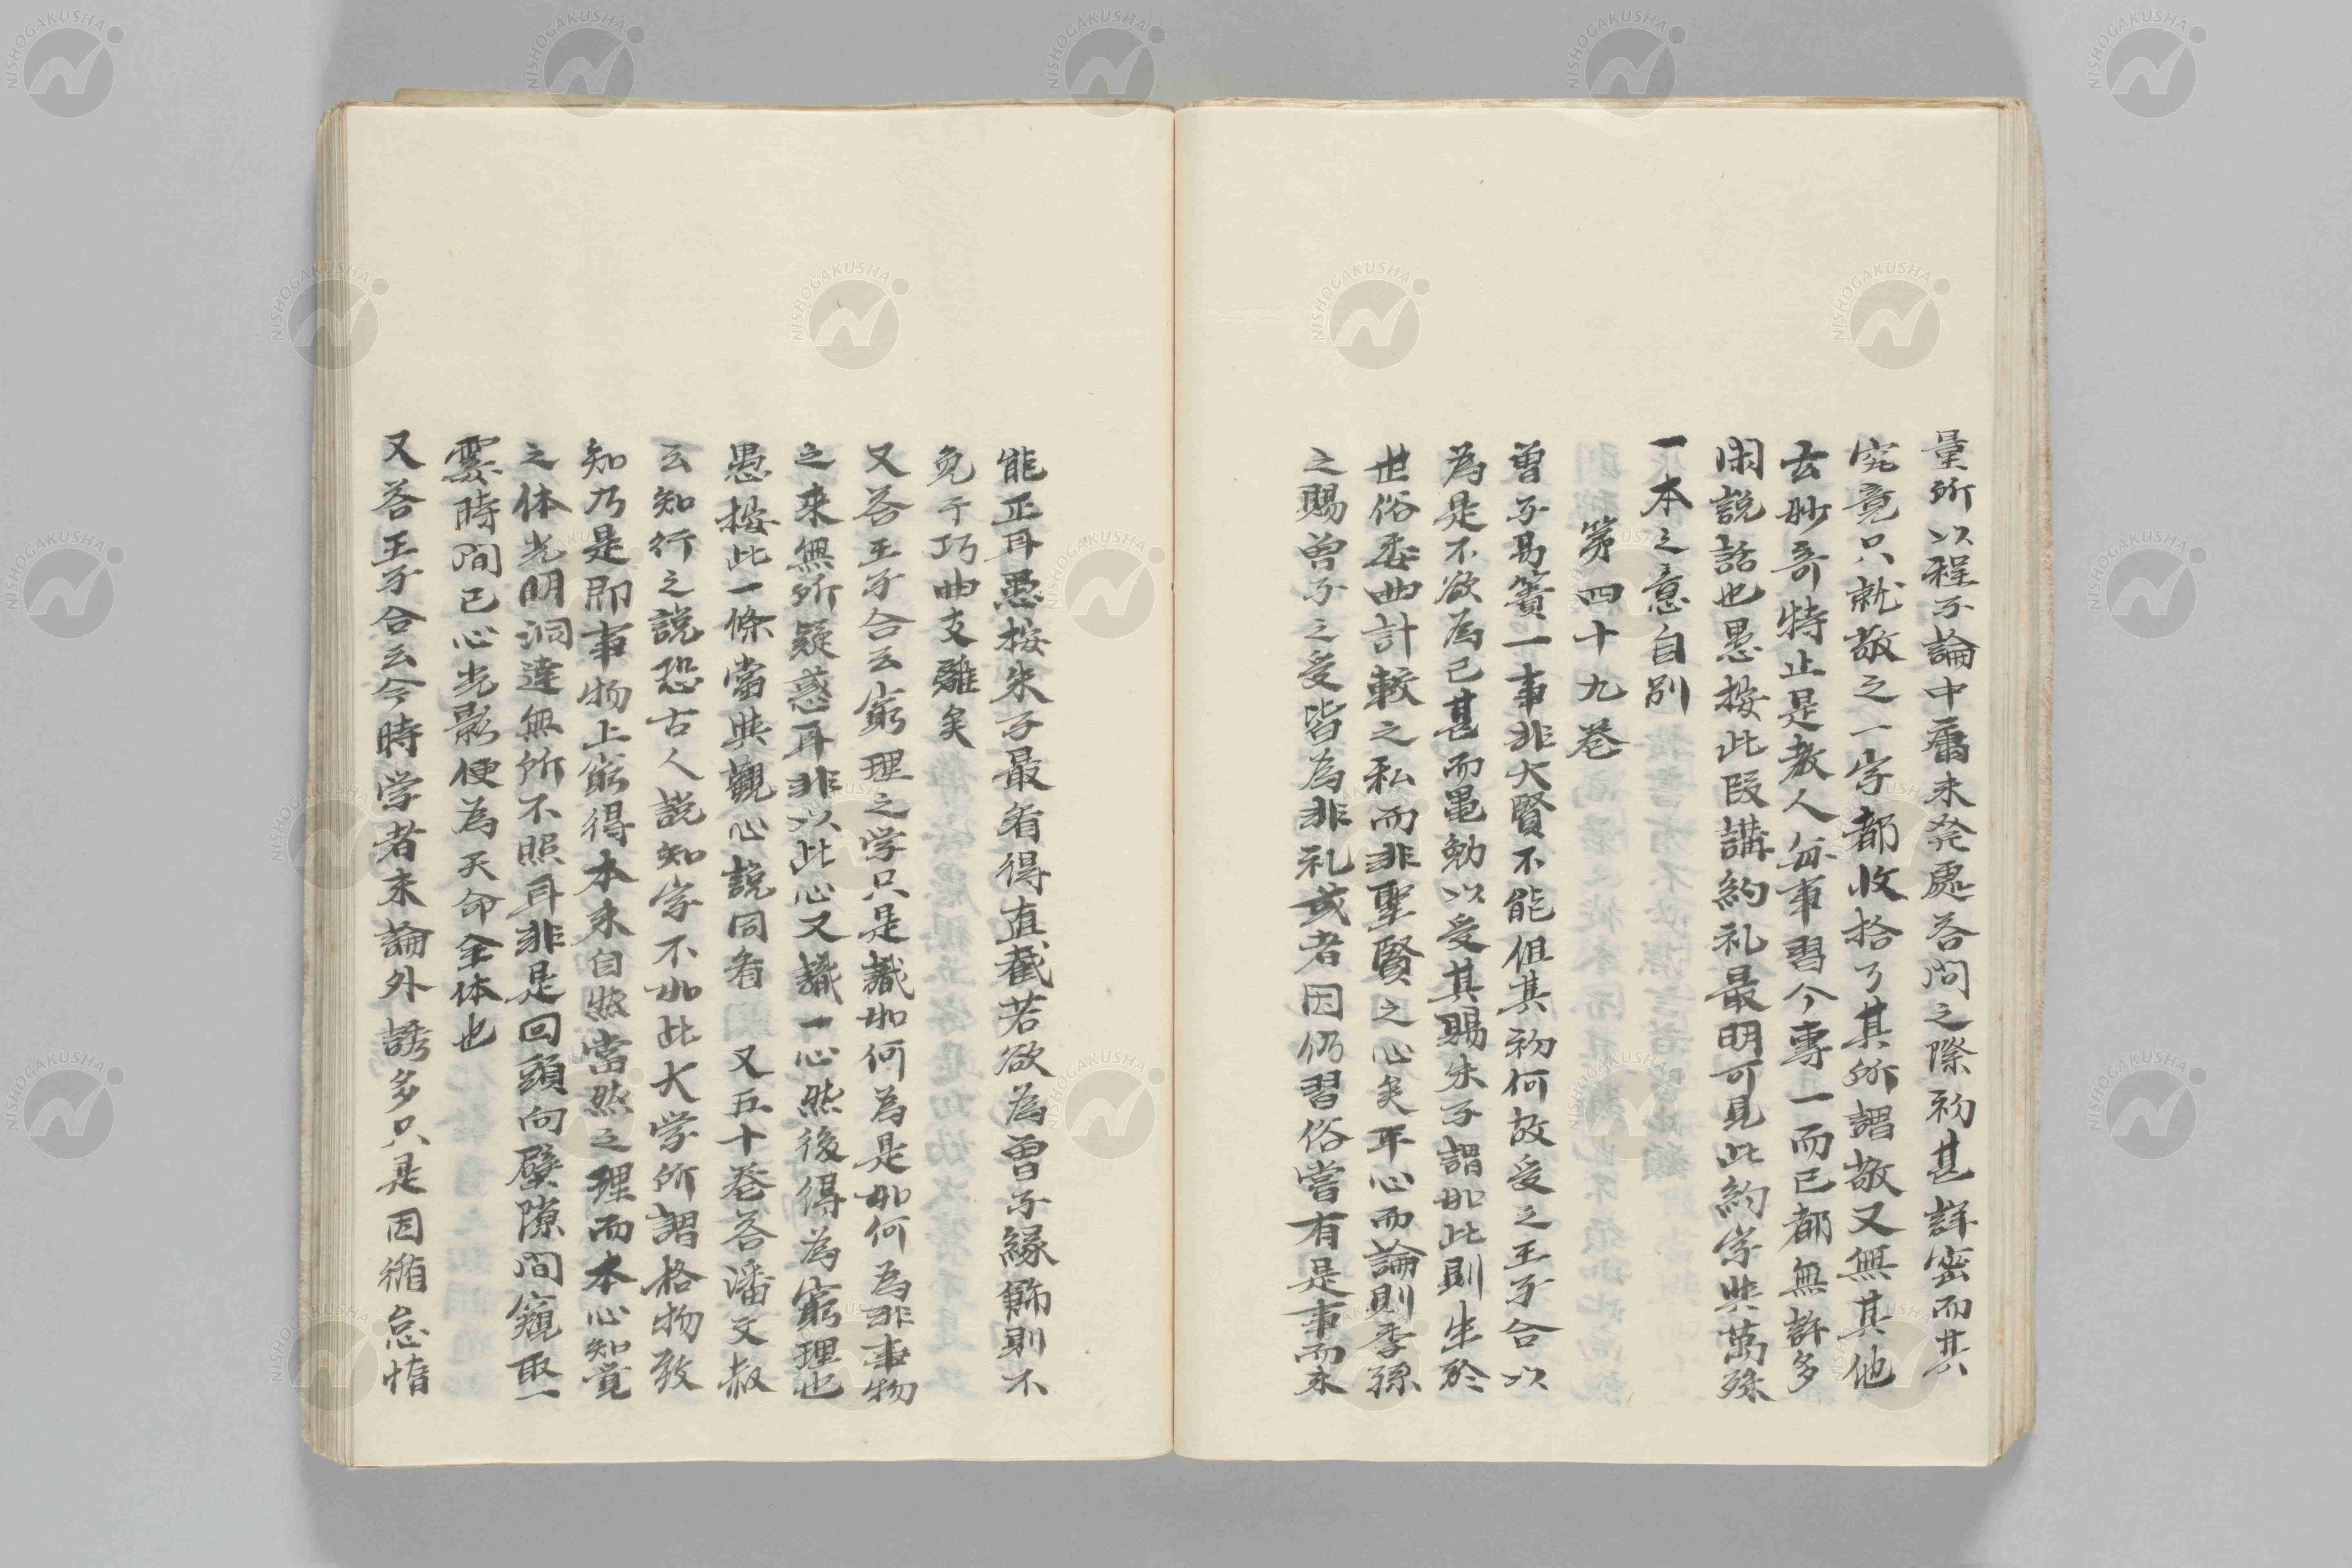 量所以程子論中庸未発處答問之際初甚詳密而其
究竟只就敬之一字都收拾了其所謂敬又無其他
玄妙奇特止是教人每事習个專一而已都無許多
閑説話也愚按此段講約礼最明可見此約字與萬殊
一本之意自別
第四十九巻
曽子易簀一事非大賢不能但其初何故受之王子合以
為是不欲為已甚而黽勉以受其賜朱子謂如此則生於
世俗委曲計較之私而非聖賢之心矣平心而論則季孫
之賜曽子之受皆為非礼或者因仍習俗嘗有是事而未
能正耳愚按朱子最看得直截若欲為曽子緣飾則不
免于巧曲支離矣
又答王子合云窮理之学只是識如何為是如何為非事物
之来無所疑惑耳非以此心又識一心然後得為窮理也
愚按此一條當與觀心説同看 又五十巻答潘文叔
云知行之説恐古人説知字不如此大学所謂格物致
知乃是即事物上窮得本来自然當然之理而本心知覚
之体光明洞達無所不照耳非是回頭向壁隙間窺取一
霎時間已心光影便為天命全体也
又答王子合云今時学者未論外誘多只是因循怠惰
NISHOGAKUSHA